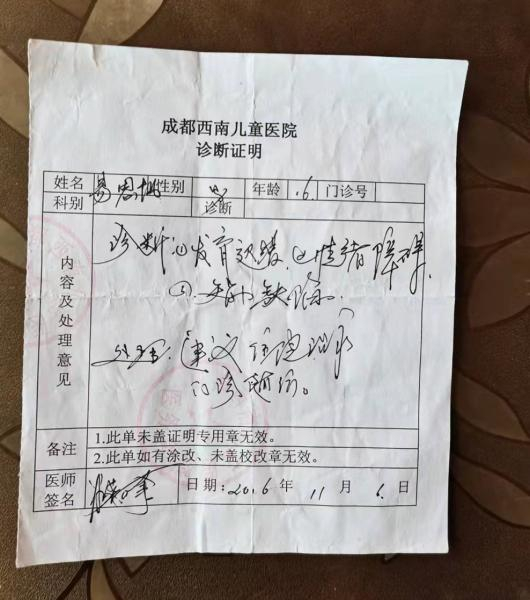 成都西南儿童医院
诊断证明
姓名 易思 性别 女 年龄 .6 门诊号
科别 诊断
内容及处理意见
诊断:①发育迟缓.②情绪障碍.
③.
处理:建议住院
门诊随访。
备注 1.此单未盖证明专用章无效。
2.此单如有涂改、未盖校改章无效。
医师签名 日期:2016 年 11 月 6. 日